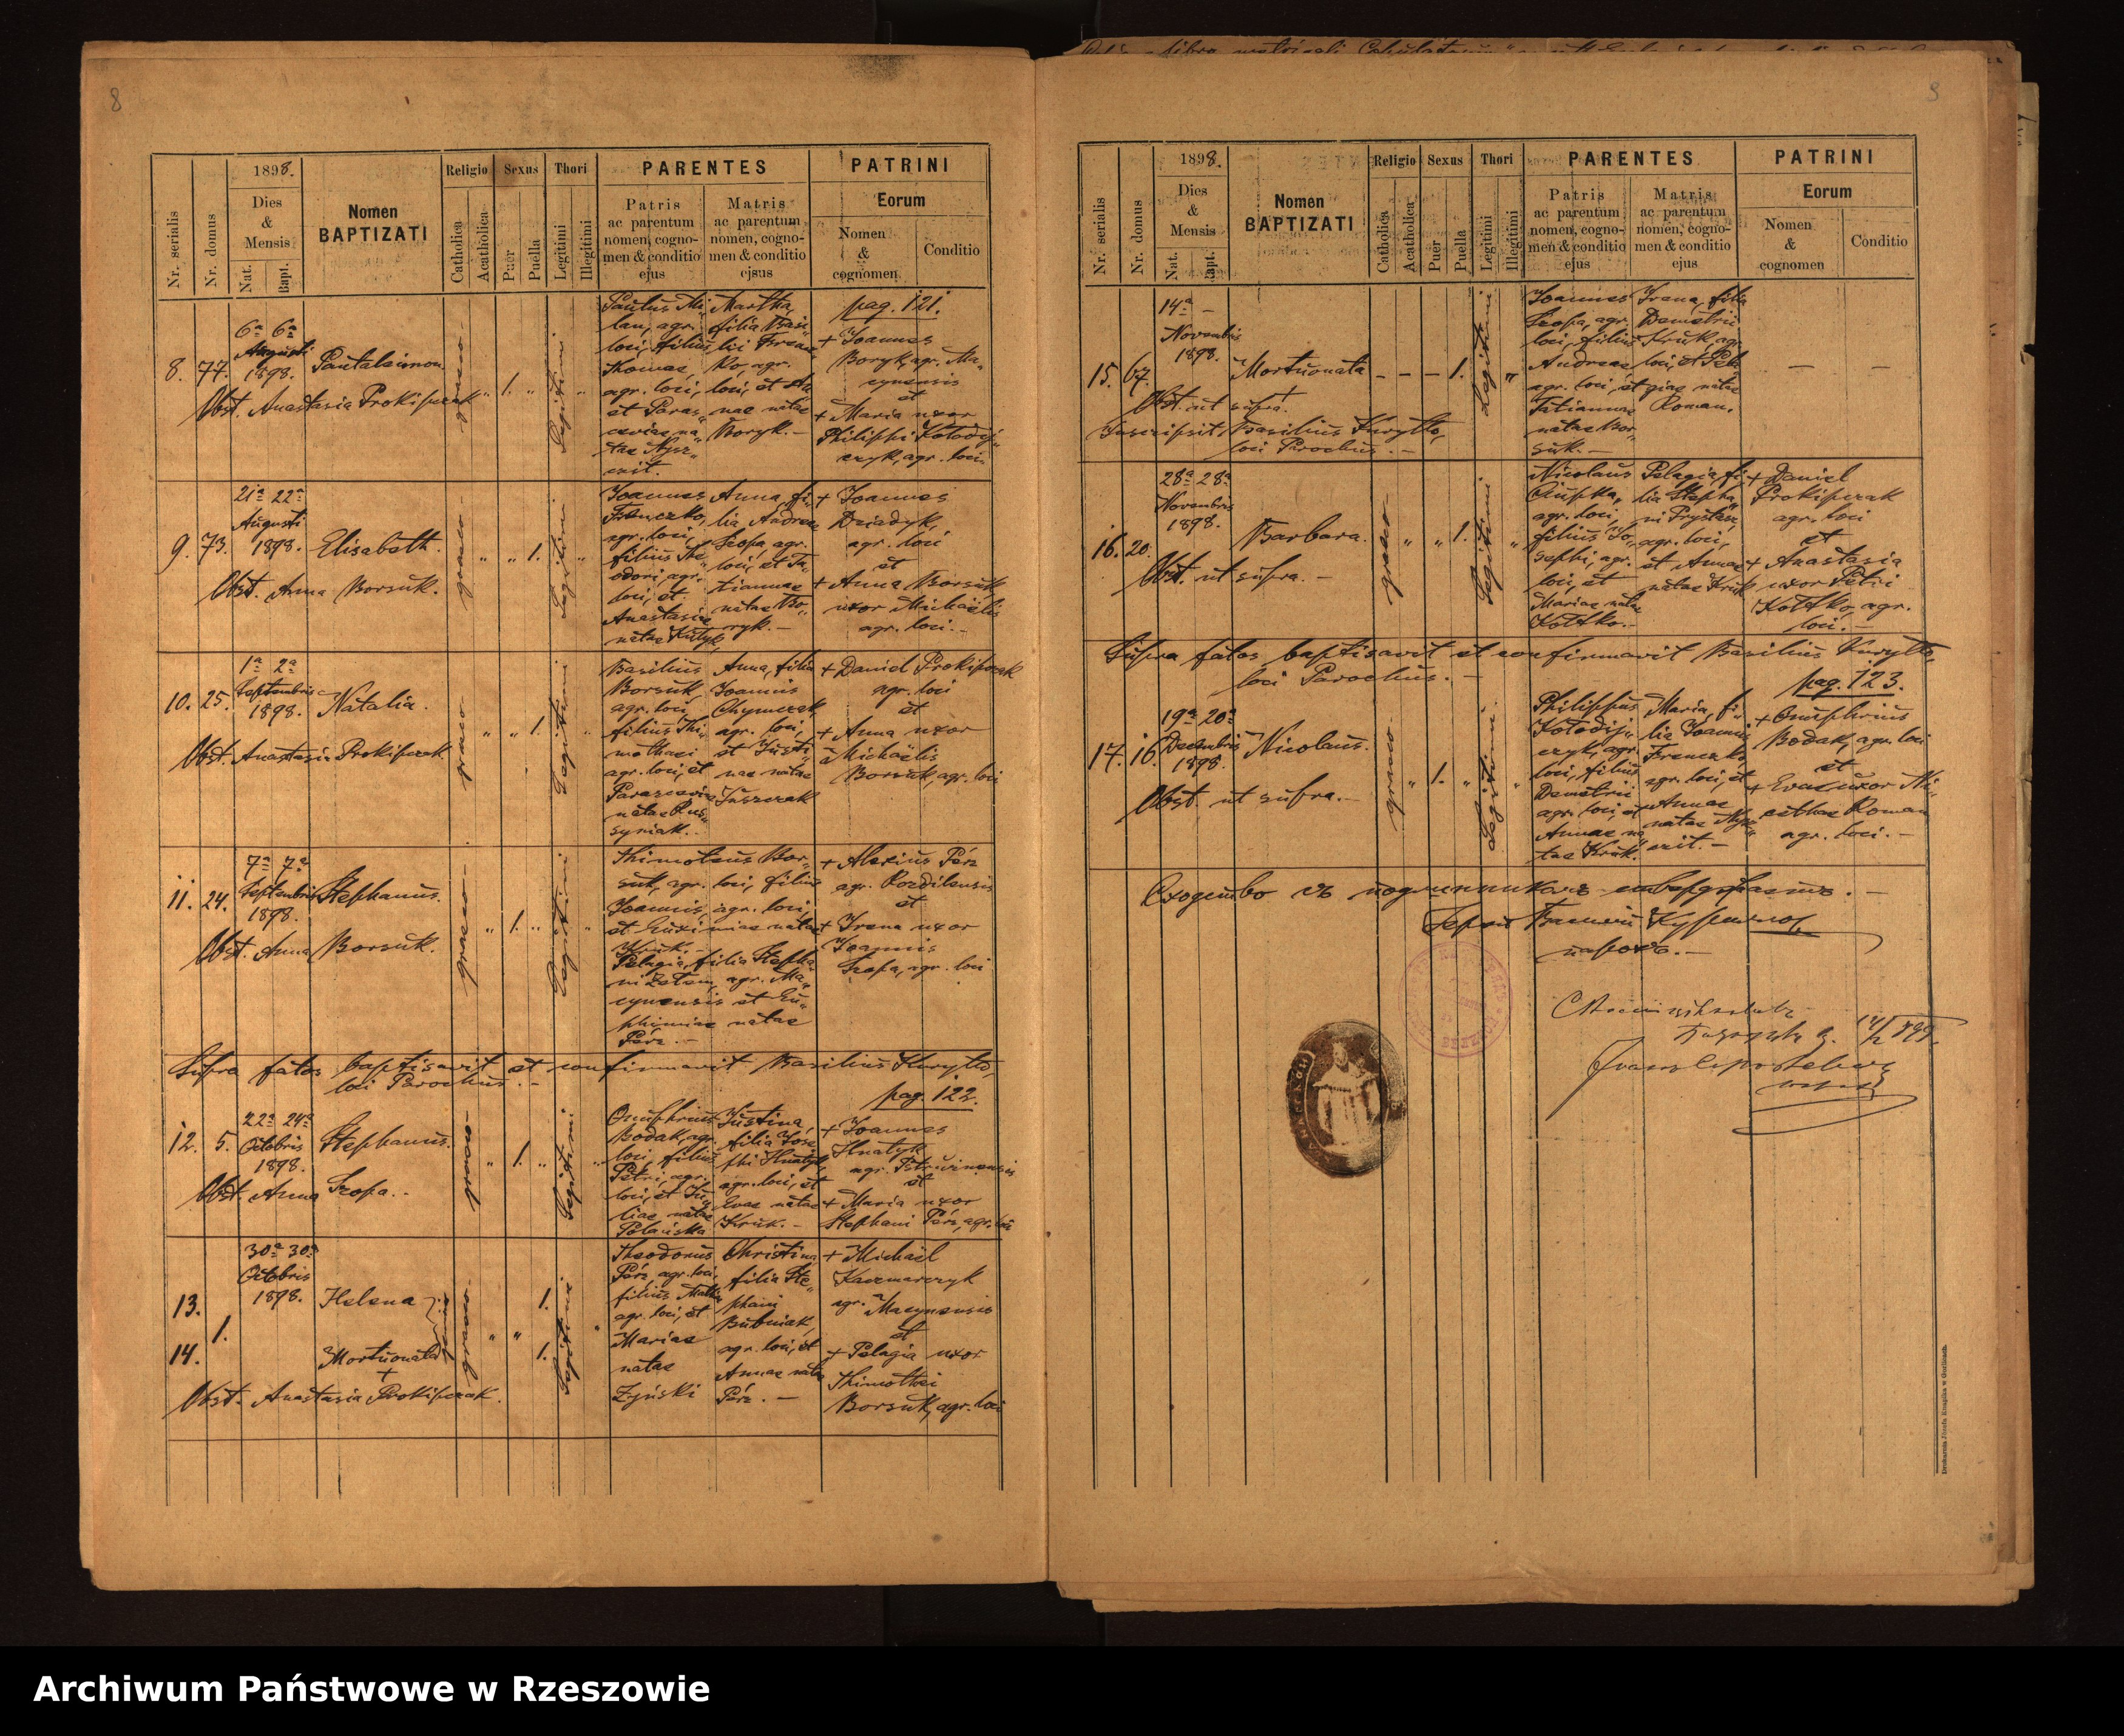 8
1898.
Nr. serialis
Nr. domus
Dies
&
Mensis
Nat.
Bapt.
Nomen
BAPTIZATI
Religio
Catholica
Acatholica
Sexus
Puer
Puella
Thori
Legitimi
Illegitimi
PARENTES
Patris
ac parentum
nomen, cogno-
men & conditio
ejus
Matris
ac parentum
nomen, cogno-
men & conditio
ejsus
PATRINI
Eorum
Nomen
&
cognomen
Conditio
8. 77.
6ª 6ª
Augusti
1898.
Pantaleimon
Obst. Anastasia Prokipczak
graeco
1.
Legitimi
agr. loci, filius
Thomae,
agr. loci,
et Paras-
ceviae na-
tae
Martha,
filia Basi-
lii
ko, agr.
loci, et An-
nae natae
Boryk. -
pag. 121.
+ Joannes
Boryk, agr. Ma-
cynensis
et
+ Maria uxor
Philippi Kołodij-
czyk, agr. loci
9. 73.
21ª 22ª
Augusti
1898.
Elisabeth.
Obst. Anna Borsuk.
graeco
1.
Legitimi
Joannes
agr. loci,
filius The-
odori, agr.
loci, et
Anastasiae
natae
Anna, fi-
lia Andreae
Szopa, agr.
loci, et Ta-
tiannae
natae Bo-
ryk. -
+ Joannes
Dziadyk,
agr. loci
et
+ Anna Borsuk
uxor Michaëlis
agr. loci. -
10. 25.
1ª 2ª
Septembris
1898.
Natalia.
Obst. Anastasia Prokipczak
graeco
1.
Legitimi
Basilius
Borsuk,
agr. loci,
filius Thi-
mothaei
agr. loci, et
Parasceviae
natae Rus-
syniak.
Anna, filia
Joannis
Chymczak,
agr. loci,
et Justi-
nae natae
Juszczak
+ Daniel Prokipczak
agr. loci
et
+ Anna uxor
Michaëlis
Borsuk, agr. loci
11. 24.
7ª 7ª
Septembris
1898.
Stephanus.
Obst. Anna Borsuk.
graeco
1.
Legitimi
Thimoteus Bor-
suk, agr. loci, filius
Joannis, agr. loci,
et Eudimiae natae
Kruk. -
Pelagia, filia Stepha-
ni agr. Ma-
cynensis et Eu-
phimiae natae
Pérz. -
+ Alexius Pérz
agr. Rozdilensis
et
+ Irena uxor
Joannis
Szopa, agr. loci
Supra fatos baptisavit et confirmavit Basilius Kuryłło,
loci Parochus. -
pag. 122.
12. 5.
22ª 24ª
Octobris
1898.
Stephanus.
Obst. Anna Szopa. -
graeco
1.
Legitimi
Onuphrius
Bodak, agr.
loci, filius
Petri, agr.
loci, et Ju-
liae natae
Polańska
Justina,
filia Jose-
phi Hnatyk,
agr. loci, et
Evae natae
Kruk. -
+ Joannes
Hnatyk
agr.
et
+ Maria uxor
Stephani Pérz, agr. loci
13.
14.
1.
30ª 30ª
Octobris
1898.
Helena
Mortuonata
+
Obst. Anastasia Prokipczak.
graeco
1.
1.
Legitimi
Theodorus
Pérz, agr. loci,
filius
agr. loci, et
Mariae
natae
Żyński
Christina
filia Ste-
phani
Bubniak,
agr. loci, et
Annae natae
Pérz. -
+ Michaël
Kaczmarczyk
agr. Macynensis
et
+ Pelagia uxor
Thimothei
Borsuk, agr. loci
9
1898.
Nr. serialis
Nr. domus
Dies
&
Mensis
Nat.
Bapt.
Nomen
BAPTIZATI
Religio
Catholica
Acatholica
Sexus
Puer
Puella
Thori
Legitimi
Illegitimi
PARENTES
Patris
ac parentum
nomen, cogno-
men & conditio
ejus
Matris
ac parentum
nomen, cogno-
men & conditio
ejus
PATRINI
Eorum
Nomen
&
cognomen
Conditio
15. 67.
14ª -
Novembris
1898.
Mortuonata
+
Obst. ut supra.
Inscripsit Basilius Kuryłło,
loci Parochus. -
- - - 1.
Legitimi
Joannes
Szopa, agr.
loci, filius
Andreae
agr. loci, et
Tatiannae
natae Bor-
suk. -
Irena, filia
Demetrii
Kruk, agr.
loci, et Pela-
giae natae
Roman.
- -
16. 20.
28ª 28ª
Novembris
1898.
Barbara.
Obst. ut supra. -
graeco
1.
Legitimi
Nicolaus
agr. loci,
filius Jo-
sephi, agr.
loci, et
Mariae natae
Kottko. -
Pelagia, fi-
lia Stepha-
ni Prystasz,
agr. loci,
et Annae
natae Kruk
+ Daniel
Prokipczak
agr. loci
et
+ Anastasia
uxor Petri
Kottko, agr.
loci. -
Supra fatos baptisavit et confirmavit Basilius Kuryłło,
loci Parochus. -
pag. 123.
17. 16.
19ª 20ª
Decembris
1898.
Nicolaus.
Obst. ut supra. -
graeco
1.
Legitimi
Philippus
Kołodij-
czyk, agr.
loci, filius
Demetrii
agr. loci, et
Annae na-
tae Kruk.
Maria, fi-
lia Joannis
agr. loci, et
Annae
natae
+ Onuphrius
Bodak, agr. loci
et
+ Eva uxor Ni-
cethae Roman
agr. loci. -
Сходство съ подлинникомъ
парохъ. -
Drukarnia Józefa Knapika w Gorlicach.
Archiwum Państwowe w Rzeszowie